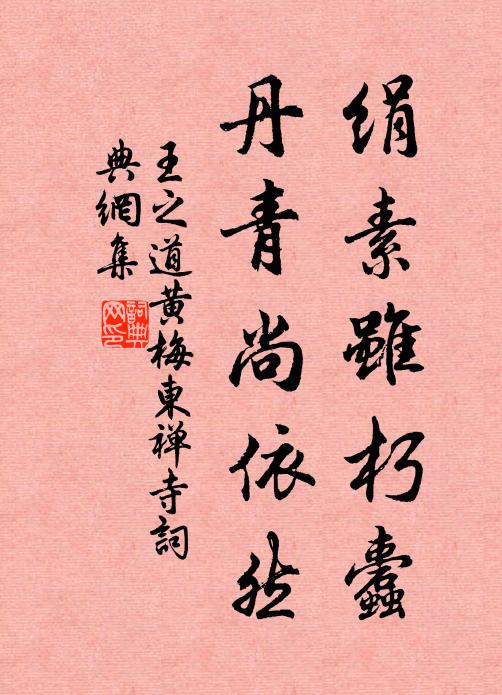 绢素虽朽蠹
丹青尚依然
王之道黄梅東禅寺詞
典網集
詞典
网印